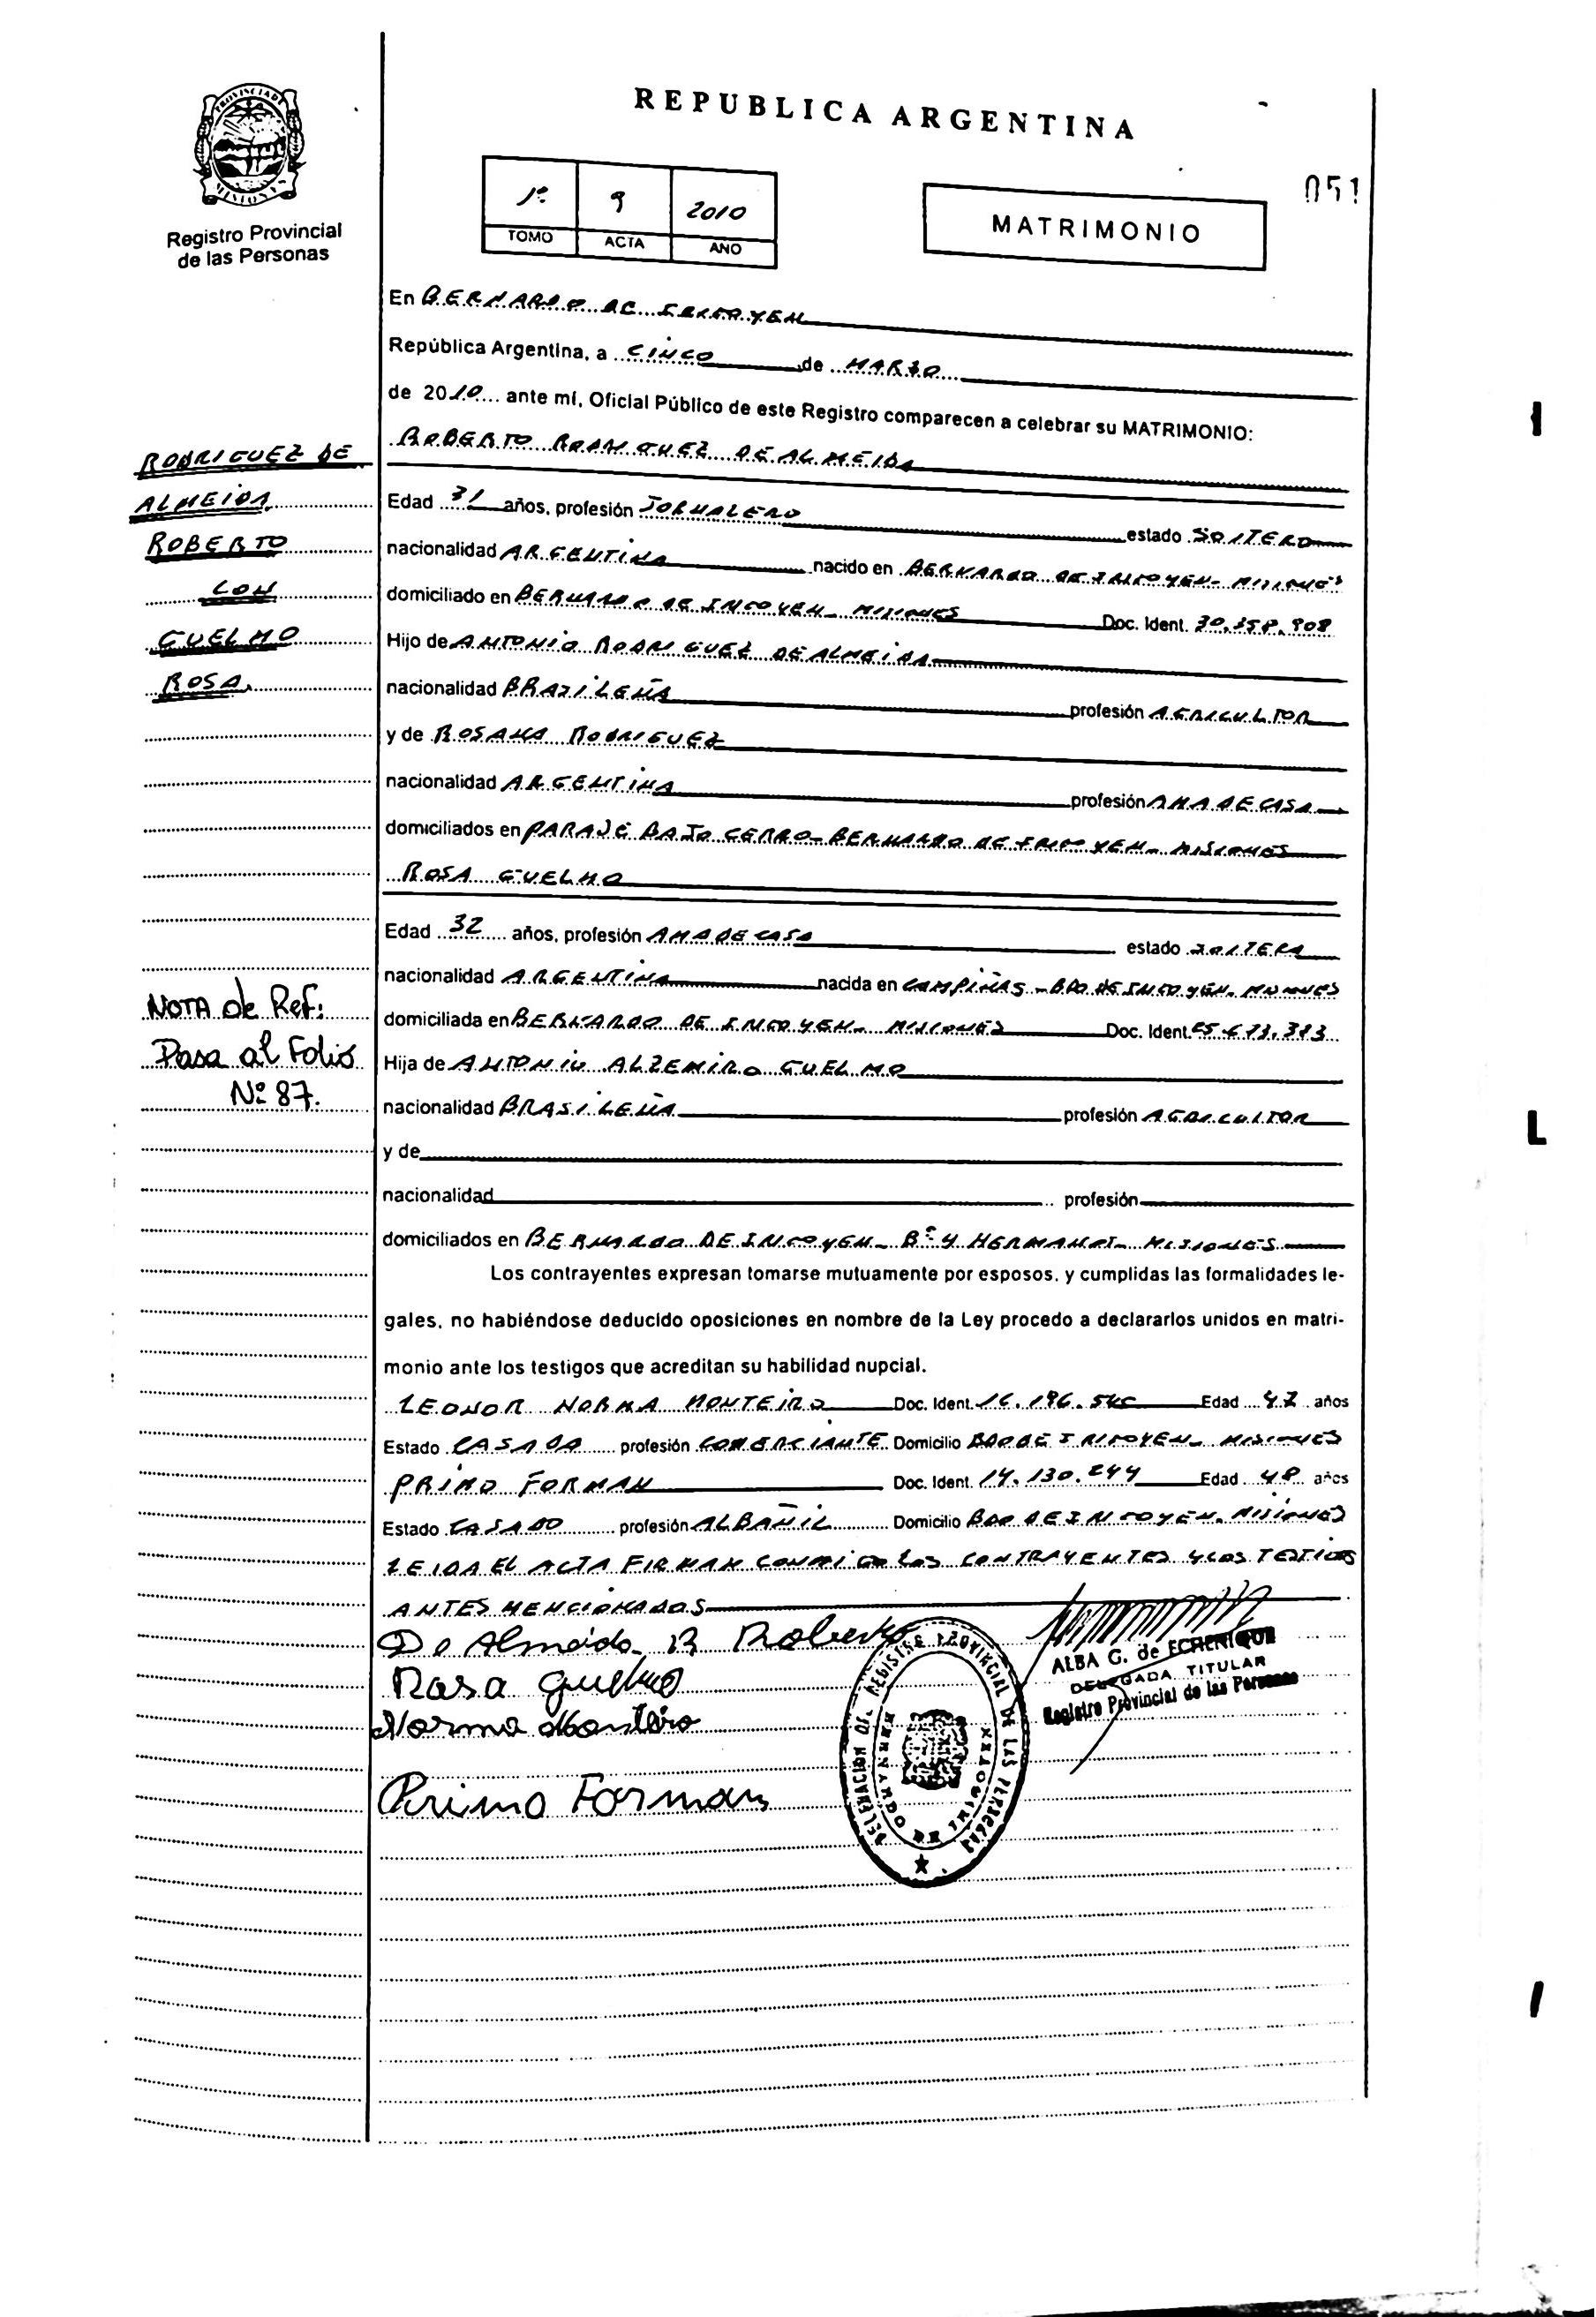 REPUBLICA ARGENTINA
PROVINCIA DE
MISIONES
Registro Provincial
de las Personas
1º 9 2010
TOMO ACTA AÑO
MATRIMONIO
051
En BERNARDO DE IRIGOYEN
República Argentina, a CINCO de MARZO
de 2010 ante mí, Oficial Público de este Registro comparecen a celebrar su MATRIMONIO:
ROBERTO RODRIGUEZ DE ALMEIDA
Edad 31 años, profesión JORNALERO estado SOLTERO
nacionalidad ARGENTINA nacido en BERNARDO DE IRIGOYEN - MISIONES
domiciliado en BERNARDO DE IRIGOYEN - MISIONES Doc. Ident. 30.358.908
Hijo de ANTONIO RODRIGUEZ DE ALMEIDA
nacionalidad BRASILEÑA profesión AGRICULTOR
y de ROSANA RODRIGUEZ
nacionalidad ARGENTINA profesión AMA DE CASA
domiciliados en PARAJE BAJO CERRO - BERNARDO DE IRIGOYEN - MISIONES
ROSA GUELMO
Edad 32 años, profesión AMA DE CASA estado SOLTERA
nacionalidad ARGENTINA nacida en CAMPIÑAS - BDO DE IRIGOYEN - MISIONES
domiciliada en BERNARDO DE IRIGOYEN - MISIONES Doc. Ident.
Hija de ANTONIO ALZEMIRO GUELMO
nacionalidad BRASILEÑA profesión AGRICULTOR
y de
nacionalidad profesión
domiciliados en BERNARDO DE IRIGOYEN - Bº Y HERMANOS - MISIONES
Los contrayentes expresan tomarse mutuamente por esposos, y cumplidas las formalidades le-
gales, no habiéndose deducido oposiciones en nombre de la Ley procedo a declararlos unidos en matri-
monio ante los testigos que acreditan su habilidad nupcial.
LEONOR NORMA MONTEIRO Doc. Ident. Edad 47 años
Estado CASADA profesión COMERCIANTE Domicilio BDO DE IRIGOYEN - MISIONES
PRIMO FORMAN Doc. Ident. 14.130.244 Edad 48 años
Estado CASADO profesión ALBAÑIL Domicilio BDO DE IRIGOYEN - MISIONES
LEIDA EL ACTA FIRMAN CONMIGO LOS CONTRAYENTES Y LOS TESTIGOS
ANTES MENCIONADOS
De Almeida R Roberto
Rosa Guelmo
Norma Monteiro
Primo Forman
DELEGACION DEL REGISTRO PROVINCIAL DE LAS PERSONAS
BERNARDO DE IRIGOYEN
ALBA G. de ECHENIQUE
DELEGADA TITULAR
Registro Provincial de las Personas
RODRIGUEZ DE
ALMEIDA
ROBERTO
CON
GUELMO
ROSA
NOTA de Ref:
Pasa al Folio
Nº 87.